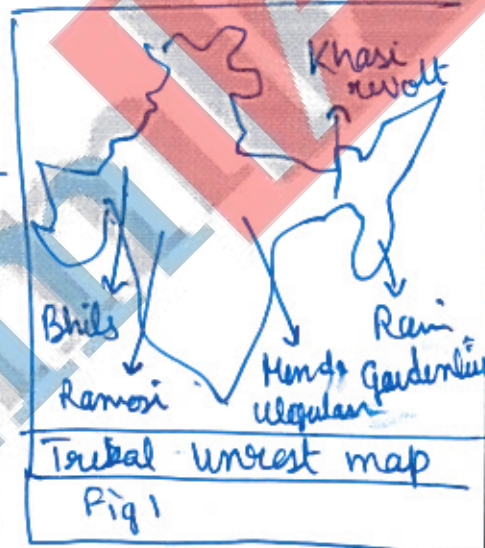 Khasi
revolt
Bhils
Ramosi
Munda
Ulgulaan
Rani
Gaidenliu
Tribal unrest map
Fig 1